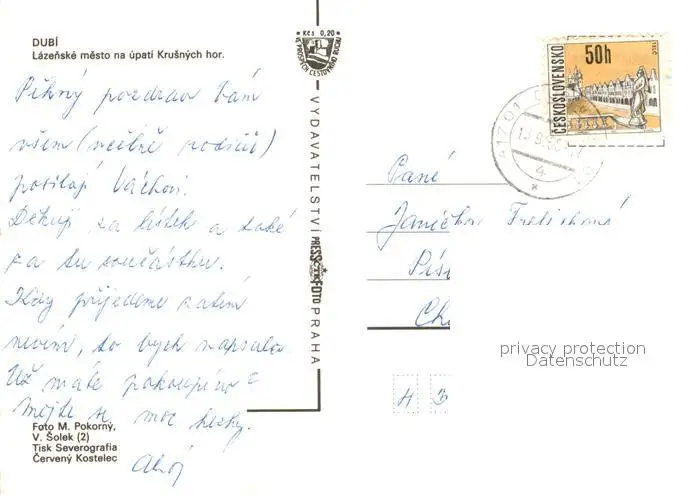 DUBÍ
Lázeňské město na úpatí Krušných hor.
Pěkný pozdrav Vám
všem (včetně rodičů)
posílají Váchovi.
Děkuji za lístek a také
za tu součástku.
Kdy přijedeme zatím
nevím, to bych napsala.
Už máte pokoupíno?
mějte se moc hezky.
Ahoj
Foto M. Pokorný,
V. Šolek (2)
Tisk Severografia
Červený Kostelec
Kčs 0,20
VE PROSPĚCH CESTOVNÍHO RUCHU
VYDAVATELSTVÍ PRESSFOTO PRAHA
ČESKOSLOVENSKO
50h
TELČ
417 01
4
Paní
Janička
Pís
Ch
privacy protection
Datenschutz